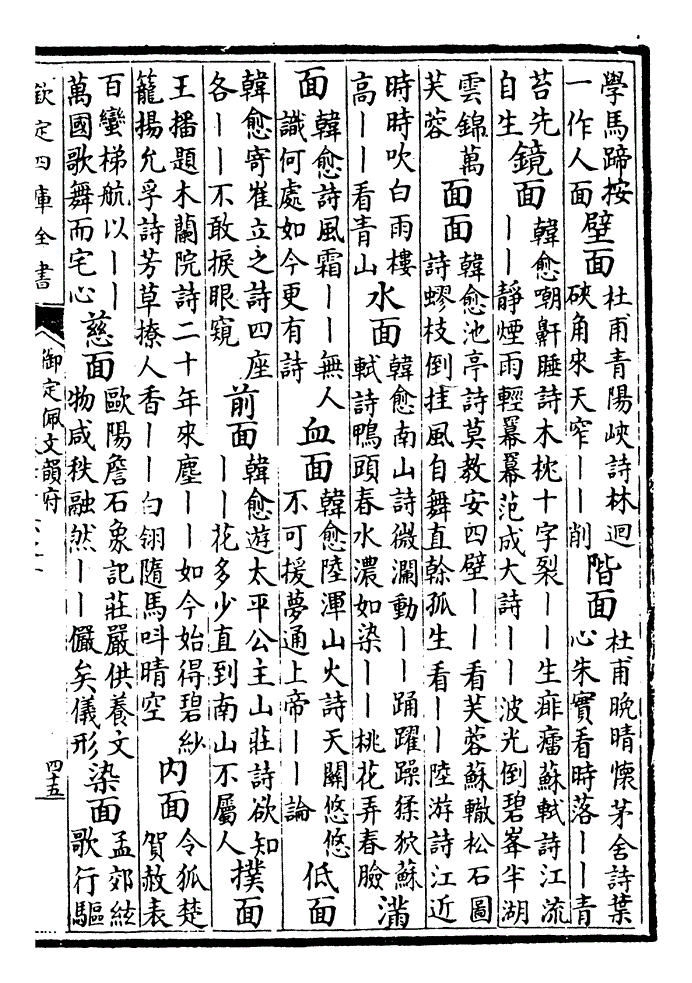 學馬蹄按
一作人面
壁面
杜甫青陽峽詩林迥
硤角來天窄丨丨削
階面
杜甫晚晴懷茅舍詩葉
心朱實看時落丨丨青
苔先
自生
鏡面
韓愈嘲鼾睡詩木枕十字裂丨丨生痱癗蘇軾詩江流
丨丨靜煙雨輕羃羃范成大詩丨丨波光倒碧峯半湖
雲錦萬
芙蓉
面面
韓愈池亭詩莫教安四壁丨丨看芙蓉蘇轍松石圖
詩蟉枝倒挂風自舞直榦孤生看丨丨陸游詩江近
時時吹白雨樓
高丨丨看青山
水面
韓愈南山詩微瀾動丨丨踊躍躁猱狖蘇
軾詩鴨頭春水濃如染丨丨桃花弄春臉
滿
面
韓愈詩風霜丨丨無人
識何處如今更有詩
血面
韓愈陸渾山火詩天關悠悠
不可援夢通上帝丨丨論
低面
韓愈寄崔立之詩四座
各丨丨不敢捩眼窺
前面
韓愈遊太平公主山莊詩欲知
丨丨花多少直到南山不屬人
撲面
王播題木蘭院詩二十年來塵丨丨如今始得碧紗
籠揚允孚詩芳草撩人香丨丨白翎隨馬叫晴空
内面
令狐楚
賀赦表
百蠻梯航以丨丨
萬國歌舞而宅心
慈面
歐陽詹石象記莊嚴供養文
物咸秩融然丨丨儼矣儀形
染面
孟郊絃
歌行驅
欽定四庫全書
御定佩文韻府
四十五